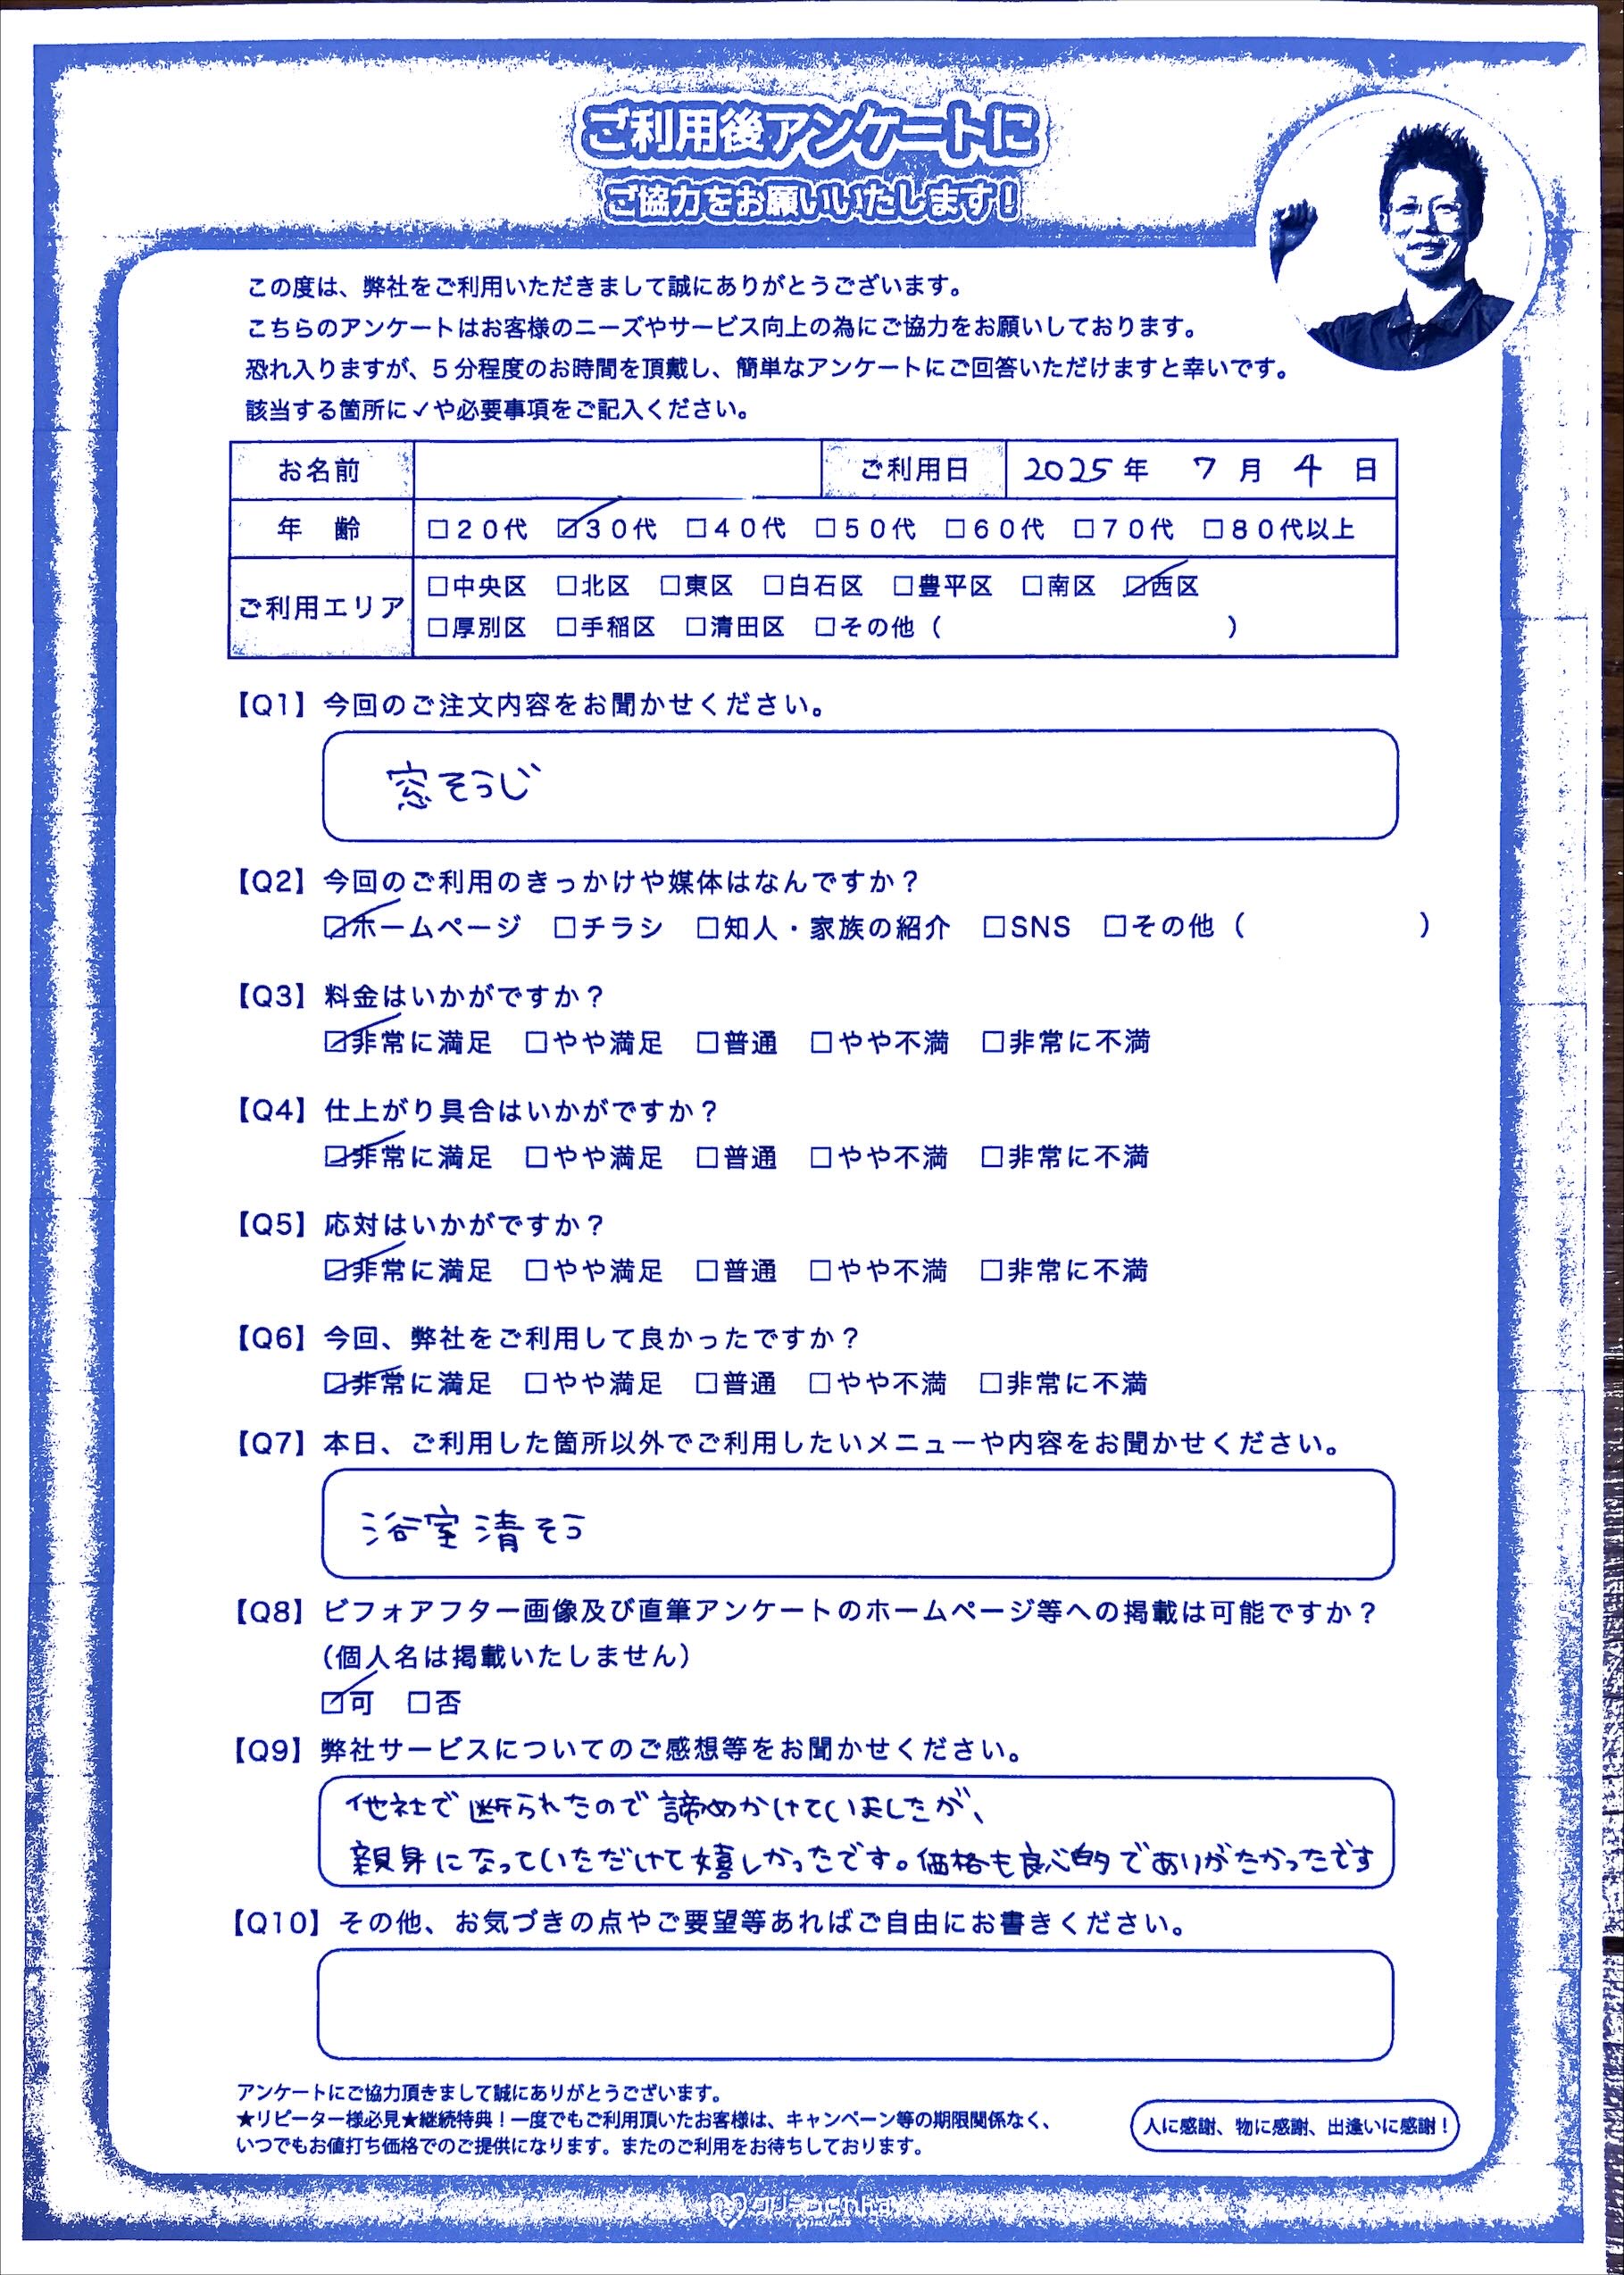 ご利用後アンケートに
ご協力をお願いいたします!
この度は、弊社をご利用いただきまして誠にありがとうございます。
こちらのアンケートはお客様のニーズやサービス向上の為にご協力をお願いしております。
恐れ入りますが、5分程度のお時間を頂戴し、簡単なアンケートにご回答いただけますと幸いです。
該当する箇所に✓や必要事項をご記入ください。
お名前 ご利用日 2025年 7月 4日
年 齢 □20代 ☑30代 □40代 □50代 □60代 □70代 □80代以上
ご利用エリア □中央区 □北区 □東区 □白石区 □豊平区 □南区 ☑西区
□厚別区 □手稲区 □清田区 □その他( )
【Q1】今回のご注文内容をお聞かせください。
窓そうじ
【Q2】今回のご利用のきっかけや媒体はなんですか?
☑ホームページ □チラシ □知人・家族の紹介 □SNS □その他( )
【Q3】料金はいかがですか?
☑非常に満足 □やや満足 □普通 □やや不満 □非常に不満
【Q4】仕上がり具合はいかがですか?
☑非常に満足 □やや満足 □普通 □やや不満 □非常に不満
【Q5】応対はいかがですか?
☑非常に満足 □やや満足 □普通 □やや不満 □非常に不満
【Q6】今回、弊社をご利用して良かったですか?
☑非常に満足 □やや満足 □普通 □やや不満 □非常に不満
【Q7】本日、ご利用した箇所以外でご利用したいメニューや内容をお聞かせください。
浴室清そう
【Q8】ビフォアフター画像及び直筆アンケートのホームページ等への掲載は可能ですか?
(個人名は掲載いたしません)
☑可 □否
【Q9】弊社サービスについてのご感想等をお聞かせください。
他社で断られたので諦めかけていましたが、
親身になっていただけて嬉しかったです。価格も良心的でありがたかったです
【Q10】その他、お気づきの点やご要望等あればご自由にお書きください。
アンケートにご協力頂きまして誠にありがとうございます。
★リピーター様必見★継続特典!一度でもご利用頂いたお客様は、キャンペーン等の期限関係なく、
いつでもお値打ち価格でのご提供になります。またのご利用をお待ちしております。
人に感謝、物に感謝、出逢いに感謝!